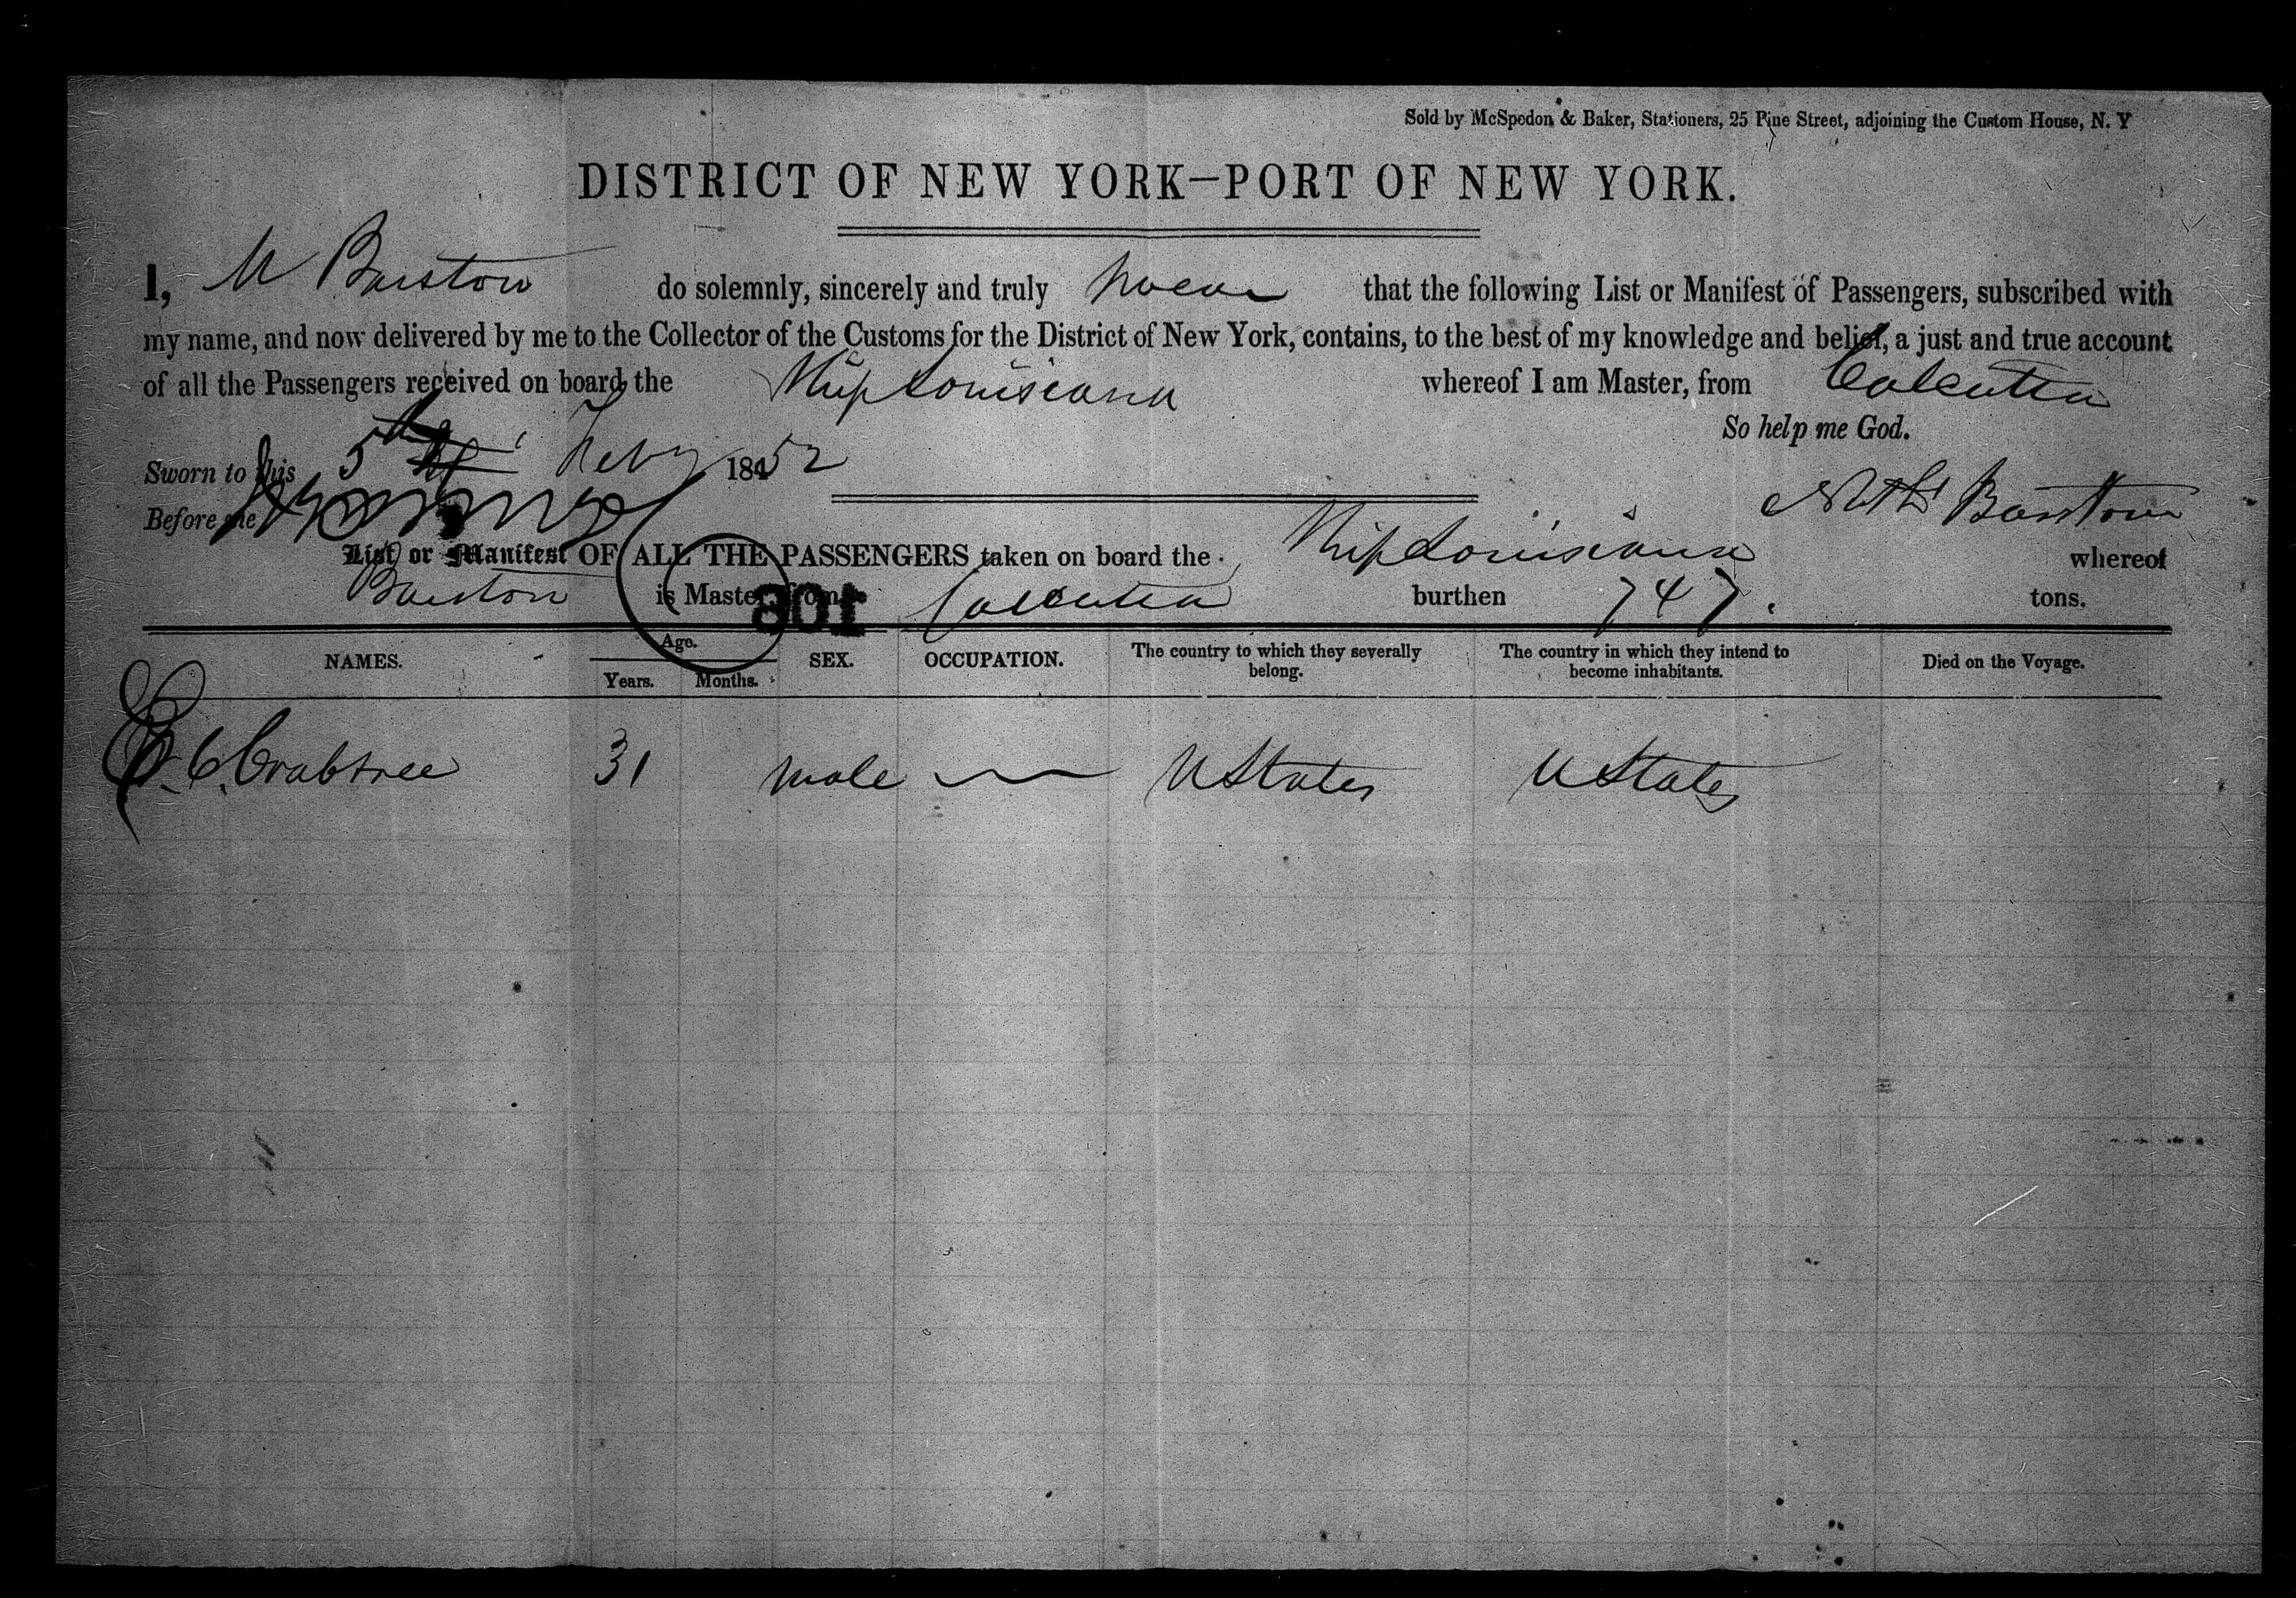 Sold by McSpedon & Baker, Stationers, 25 Pine Street, adjoining the Custom House, N. Y
DISTRICT OF NEW YORK—PORT OF NEW YORK.
I, Barstow do solemnly, sincerely and truly swear that the following List or Manifest of Passengers, subscribed with
my name, and now delivered by me to the Collector of the Customs for the District of New York, contains, to the best of my knowledge and belief, a just and true account
of all the Passengers received on board the Ship Louisiana whereof I am Master, from Calcutta
So help me God.
Sworn to this 5th Feby 1852
Before me
Barstow
List or Manifest OF ALL THE PASSENGERS taken on board the Ship Louisiana whereof
Barstow is Master, from Calcutta burthen 747. tons.
108
NAMES. Age. Years. Months. SEX. OCCUPATION. The country to which they severally belong. The country in which they intend to become inhabitants. Died on the Voyage.
E. C. Crabtree 31 male U States U States